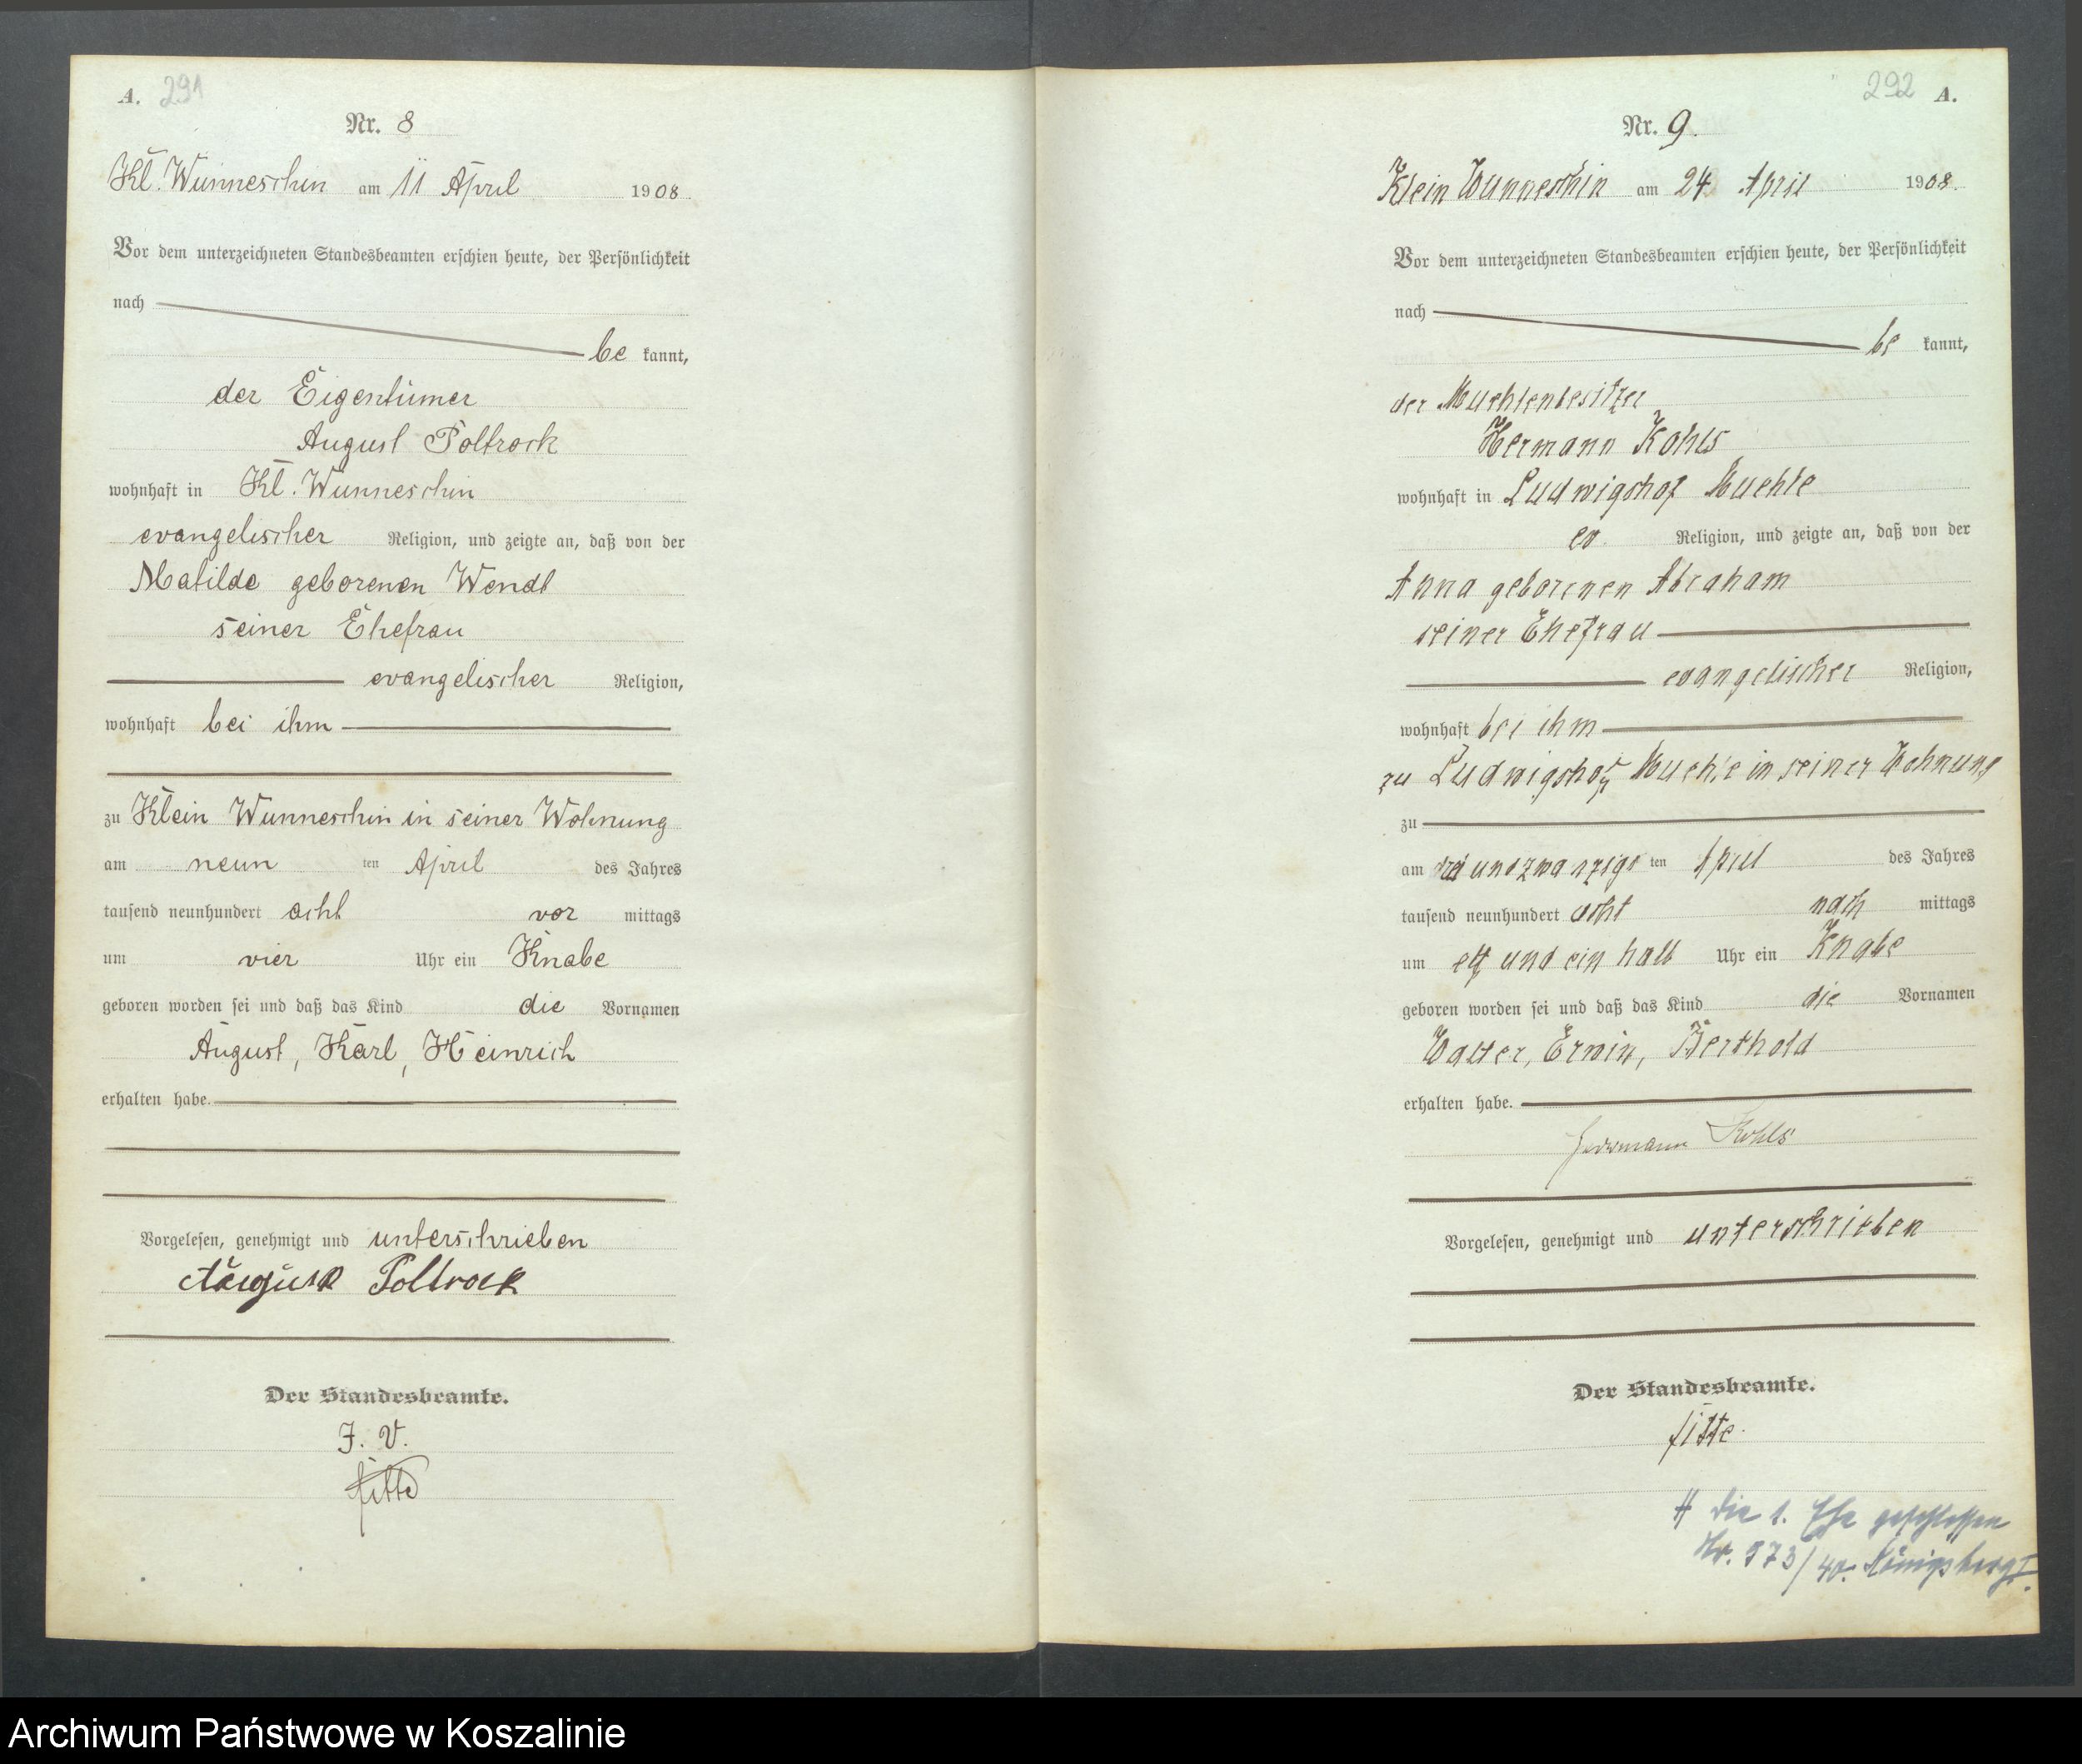 A. 291
Nr. 8
Kl. Wunneschin am 11 April 1908.
Vor dem unterzeichneten Standesbeamten erschien heute, der Persönlichkeit
nach
be kannt,
der Eigentümer
August Poltrock
wohnhaft in Kl. Wunneschin
evangelischer Religion, und zeigte an, daß von der
Matilde geborenen Wendt
seiner Ehefrau
evangelischer Religion,
wohnhaft bei ihm
zu Klein Wunneschin in seiner Wohnung
am neun ten April des Jahres
tausend neunhundert acht vor mittags
um vier Uhr ein Knabe
geboren worden sei und daß das Kind die Vornamen
August, Karl, Heinrich
erhalten habe.
Vorgelesen, genehmigt und unterschrieben
August Poltrock
Der Standesbeamte.
J. V.
292 A.
Nr. 9.
Klein Wunneschin am 24 April 1908.
Vor dem unterzeichneten Standesbeamten erschien heute, der Persönlichkeit
nach
be kannt,
der Muehlenbesitzer
Hermann Kohls
wohnhaft in Ludwigshof Muehle
ev. Religion, und zeigte an, daß von der
Anna geborenen Abraham
seiner Ehefrau
evangelischer Religion,
wohnhaft bei ihm
zu Ludwigshof Muehle in seiner Wohnung
zu
am drei undzwanzigs ten April des Jahres
tausend neunhundert acht nach mittags
um elf und ein halb Uhr ein Knabe
geboren worden sei und daß das Kind die Vornamen
Walter, Erwin, Berthold
erhalten habe.
Herrmann Kohls
Vorgelesen, genehmigt und unterschrieben
Der Standesbeamte.
die 1. Ehe geschlossen
Nr. 973/40. Königsberg I.
Archiwum Państwowe w Koszalinie